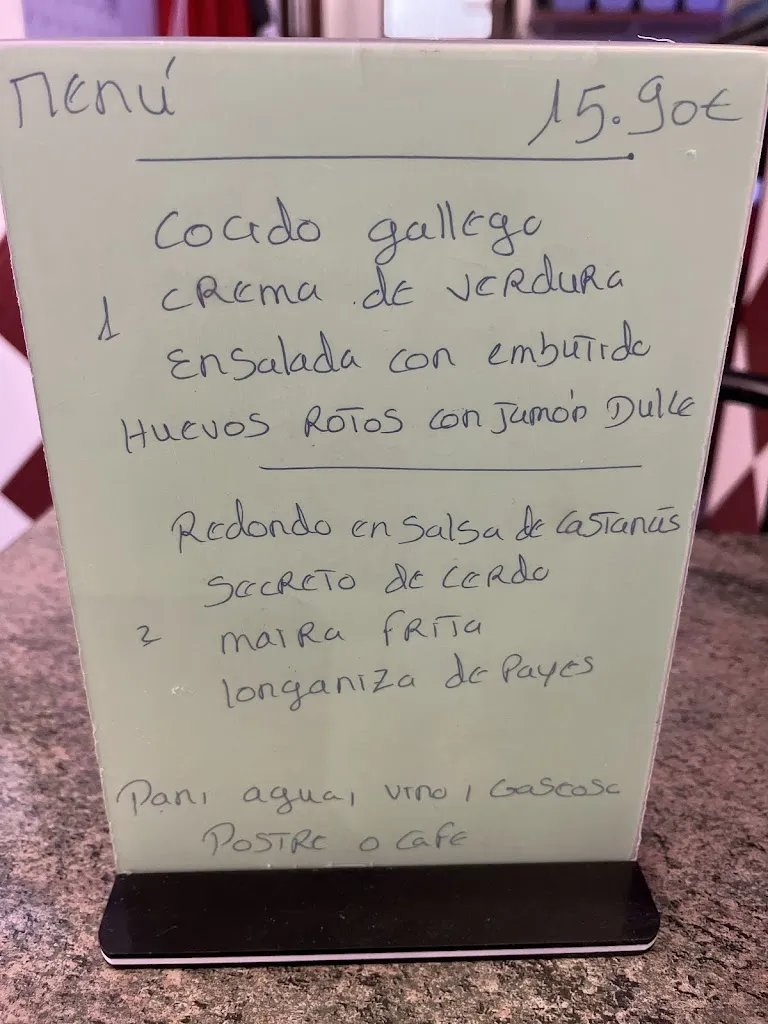 Menú 15.90€
Cocido gallego
1 crema de verdura
Ensalada con embutido
Huevos rotos con jamón dulce
Redondo en salsa de castañas
secreto de cerdo
2 maira frita
longaniza de payes
Pan, agua, vino, gaseosa
Postre o cafe